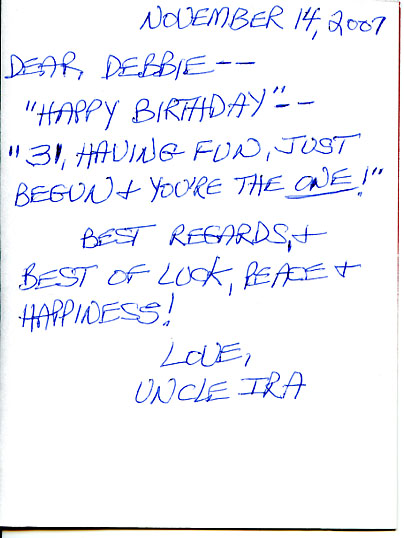 NOVEMBER 14, 2007
DEAR, DEBBIE--
"HAPPY BIRTHDAY"--
"31, HAVING FUN, JUST
BEGUN + YOU'RE THE ONE!"
BEST REGARDS, +
BEST OF LUCK, PEACE +
HAPPINESS!
LOVE,
UNCLE IRA